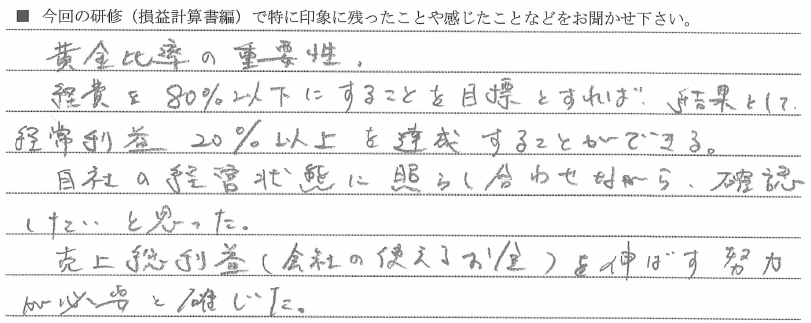 ■ 今回の研修（損益計算書編）で特に印象に残ったことや感じたことなどをお聞かせ下さい。
黄金比率の重要性。
経費を80%以下にすることを目標とすれば、結果として、
経常利益 20%以上を達成することができる。
自社の経営状態に照らし合わせながら、確認
したいと思った。
売上総利益（会社の使えるお金）を伸ばす努力
が必要と確じた。